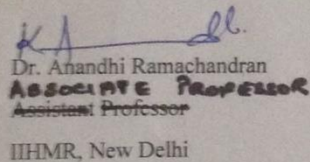 Dr. Anandhi Ramachandran
ASSOCIATE PROFESSOR
Assistant Professor
IIHMR, New Delhi